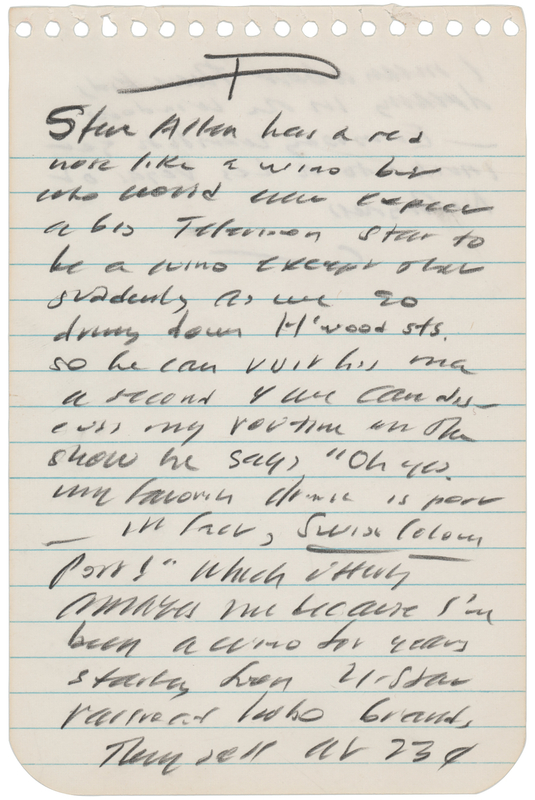 Steve Allen has a red
nose like a wino but
who would ever expect
a big Television star to
be a wino except that
suddenly as we go
driving down H'wood sts.
so he can visit his ma
a second & we can dis-
cuss my routine on the
show he says "Oh yes
my favorite drink is port
— in fact, Swiss Colony
Port!" which utterly
amazes me because I've
been a wino for years
starting from
railroad hobo brands
They sell at 23¢